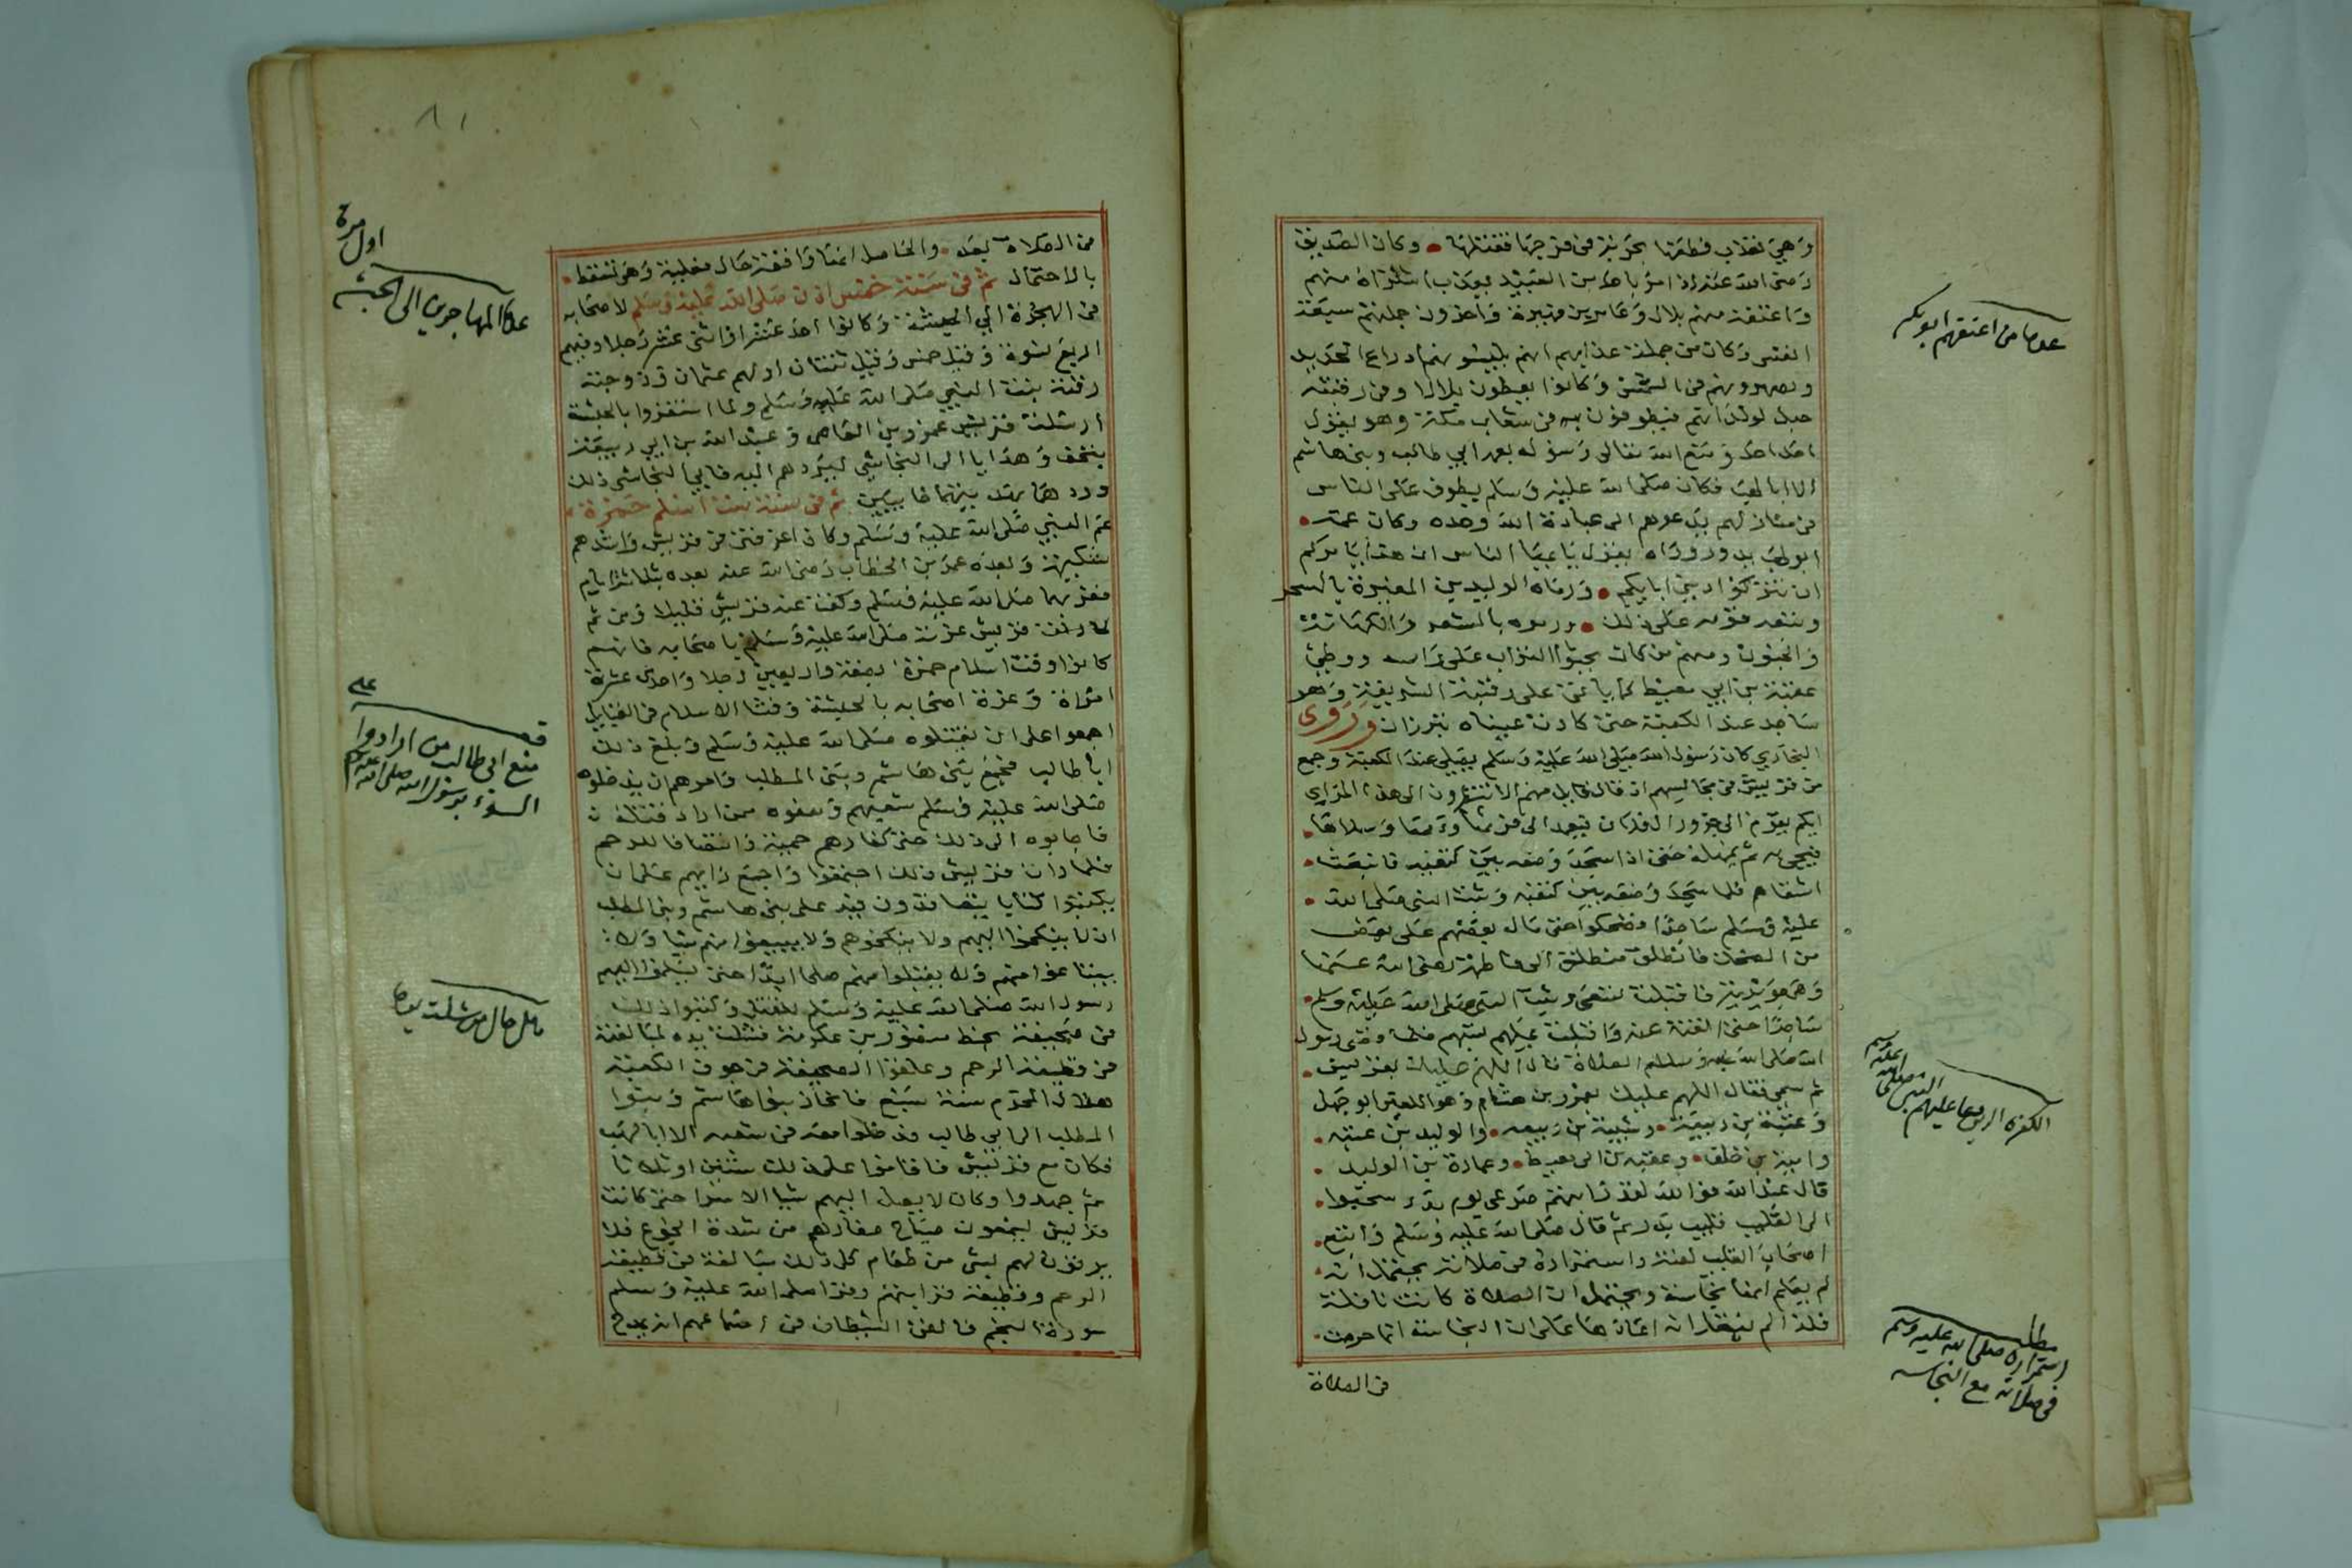 وهي تعذب فطعنها بحربة في فرجها فقتلها • وكان الصديق
رضي الله عنه اذا مر باحد من العبيد يعذب اشتراه منهم
واعتقه منهم بلال وعامر بن فهيرة واخرون جملتهم سبعة
انفس وكان من جملة عذابهم انهم يلبسونهم ادراع الحديد
ويصهرونهم في الشمس وكانوا يعطون بلالا وفي رقبته
حبل لولدانهم فيطوفون به في شعاب مكة وهو يقول
احد احد ومنع الله تعالى رسوله بعمه ابي طالب وبني هاشم
الا ابا لهب فكان صلى الله عليه وسلم يطوف على الناس
في منازلهم يدعوهم الى عبادة الله وحده وكان عمه •
ابو لهب يدور وراه يقول يا ايها الناس ان هذا يامركم
ان تتركوا دين ابايكم • ورماه الوليد بن المغيرة بالسحر
وتبعه قومه على ذلك • ورموه بالشعر والكهانة
والجنون ومنهم من كان يحثوا التراب على راسه ووطئ
عقبة بن ابي معيط على رقبته الشريفة وهو
ساجد عند الكعبة حتى كادت عيناه تبرزان وروى
البخاري كان رسول الله صلى الله عليه وسلم يصلي عند الكعبة وجمع
من قريش في مجالسهم اذ قال قايل منهم الا تنظرون الى هذا المرائي
ايكم يقوم الى جزور ال فلان فيعمد الى فرثها ودمها وسلاها •
فيجي به ثم يمهله حتى اذا سجد وضعه بين كتفيه فانبعث •
اشقاهم فلما سجد وضعه بين كتفيه وثبت النبي صلى الله •
عليه وسلم ساجدا وضحكوا حتى مال بعضهم على بعض
من الضحك فانطلق منطلق الى فاطمة رضي الله عنها
وهي جويرية فاقبلت تسعى وثبت النبي صلى الله عليه وسلم •
ساجدا حتى القته عنه واقبلت عليهم تسبهم فلما قضى رسول
الله صلى الله عليه وسلم الصلاة قال اللهم عليك بقريش •
ثم سمى فقال اللهم عليك بعمرو بن هشام وهو اللعين ابو جهل
وعتبة بن ربيعة • وشيبة بن ربيعه • والوليد بن عتبه •
وامية بن خلف • وعقبه بن ابي معيط • وعمارة بن الوليد •
قال عبد الله فوالله لقد رايتهم صرعى يوم بدر سحبوا •
الى القليب قليب بدر ثم قال صلى الله عليه وسلم واتبع •
اصحاب القليب لعنة واستمراره في صلاته يحتمل انه •
لم يعلم انها نجاسة ويحتمل ان الصلاة كانت نافلة
فلذا لم ينقل انه اعادها على ان النجاسة انما حرمت •
في الصلاة
من اعتقهم ابو بكر
الكفرة الذين دعا عليهم النبي صلى الله عليه وسلم
مطلب
استمراره صلى الله عليه وسلم
في صلاته مع النجاسه
٨١
من الصلاة بعد • والحاصل انها واقعة حال فعلية وهي تسقط •
بالاحتمال ثم في سنة خمس اذن صلى الله عليه وسلم لاصحابه
في الهجرة الى الحبشة وكانوا احد عشر او اثني عشر رجلا وفيهم
اربع نسوة وقيل خمس وقيل ثنتان اولهم عثمان وزوجته
رقية بنت النبي صلى الله عليه وسلم ولما استقروا بالحبشة
ارسلت قريش عمرو بن العاصي وعبد الله بن ابي ربيعة
بتحف وهدايا الى النجاشي ليردهم اليه فابى النجاشي ذلك
وردهما بهديتهما خايبين ثم في سنة ست اسلم حمزة •
عم النبي صلى الله عليه وسلم وكان اعز فتى في قريش واشدهم
شكيمة وبعده عمر بن الخطاب رضي الله عنه بعده بثلاثة ايام
فعز بهما صلى الله عليه وسلم وكفت عنه قريش قليلا ومن ثم
لما رات قريش عزته صلى الله عليه وسلم باصحابه فانهم
كانوا وقت اسلام حمزة بضعة واربعين رجلا واحدى عشرة
امراة وعزة اصحابه بالحبشة وفشا الاسلام في القبايل
اجمعوا على ان يقتلوه صلى الله عليه وسلم وبلغ ذلك
ابا طالب فجمع بني هاشم وبني المطلب وامرهم ان يدخلوه
صلى الله عليه وسلم شعبهم ومنعوه ممن اراد قتله
فاجابوه الى ذلك حتى كفارهم حمية للرحم
فلما رات قريش ذلك اجتمعوا واجمع رايهم على ان
يكتبوا كتابا يتعاقدون فيه على بني هاشم وبني المطلب
ان لا ينكحوا اليهم ولا ينكحوهم ولا يبيعوا منهم شيا ولا
يبتاعوا منهم ولا يقبلوا منهم صلحا ابدا حتى يسلموا اليهم
رسول الله صلى الله عليه وسلم للقتل وكتبوا ذلك
في صحيفة بخط منصور بن عكرمة فشلت يده لمبالغته
في قطيعة الرحم وعلقوا الصحيفة في جوف الكعبة
هلال المحرم سنة سبع فانحاز بنوا هاشم وبنوا
المطلب الى ابي طالب ودخلوا معه في شعبه الا ابا لهب
فكان مع قريش فاقاموا على ذلك سنتين او ثلاثا
حتى جهدوا وكان لا يصل اليهم شيا الا سرا حتى كانت
قريش يسمعون صياح صغارهم من شدة الجوع فلا
يرقون لهم بشي من طعام كل ذلك مبالغة في قطيعة
الرحم وقطيعة قرابتهم وقرا صلى الله عليه وسلم
سورة النجم فالقى الشيطان في
اول مرة
المهاجرين الى الحبشه
منع ابي طالب من ارادوا
السوء برسول الله صلى الله عليه وسلم
حال من شلت يده